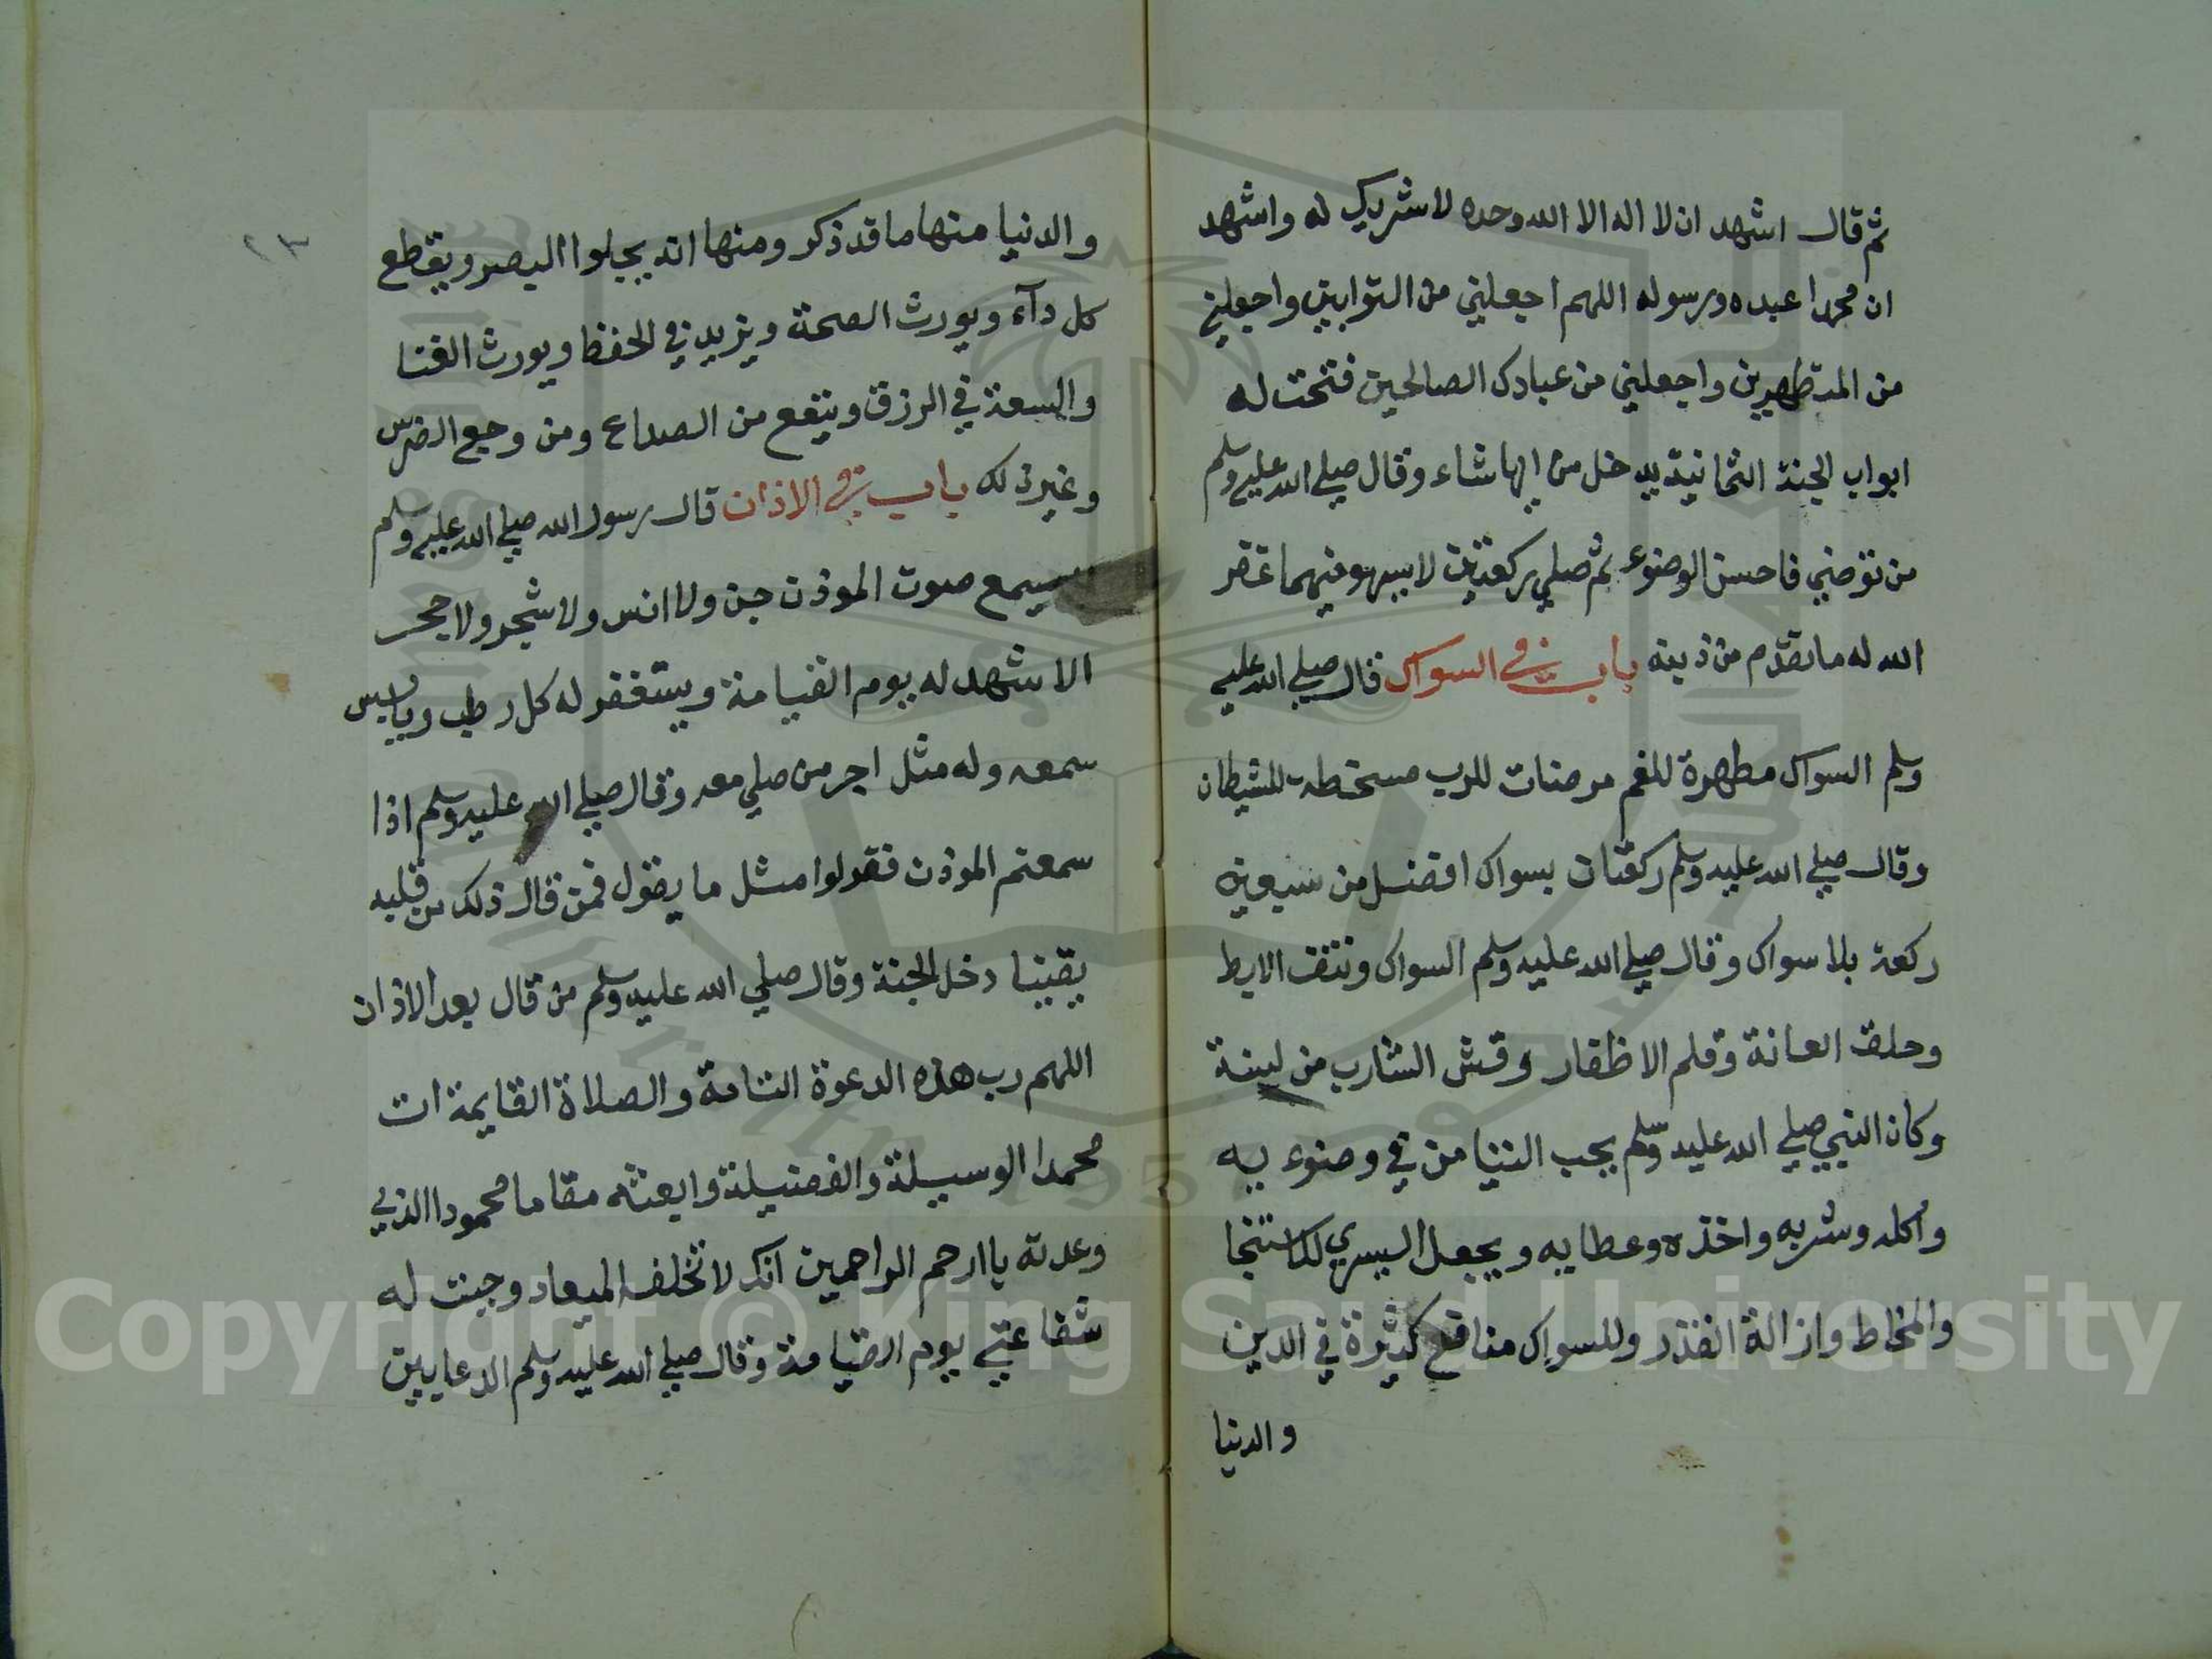 ثم قال اشهد ان لا اله الا الله وحده لا شريك له واشهد
ان محمدا عبده ورسوله اللهم اجعلني من التوابين واجعلني
من المتطهرين واجعلني من عبادك الصالحين فتحت له
ابواب الجنة الثمانية يدخل من ايها شاء وقال صلي الله عليه وسلم
من توضي فاحسن الوضوء ثم صلي ركعتين لا يسهو فيهما غفر
الله له ما تقدم من ذنبه باب في السواك قال صلي الله عليه
وسلم السواك مطهرة للفم مرضات للرب مسخطة للشيطان
وقال صلي الله عليه وسلم ركعتان بسواك افضل من سبعين
ركعة بلا سواك وقال صلي الله عليه وسلم السواك ونتف الابط
وحلق العانة وقلم الاظفار وقش الشارب من لسنة
وكان النبي صلي الله عليه وسلم يحب التيامن في وضوء يه
واكله وشربه واخذه وعطايه ويجعل اليسري للاستنجا
والمخاط وازالة القذر وللسواك منافع كثيرة في الدين
والدنيا
والدنيا منها ما قد ذكر ومنها انه يجلوا البصر ويقطع
كل دآء ويورث الصحة ويزيد في الحفظ ويورث الغنا
والسعة في الرزق وينفع من الصداع ومن وجع الضرس
وغير ذلك باب في الاذان قال رسول الله صلي الله عليه وسلم
يسمع صوت الموذن جن ولا انس ولا شجر ولا حجر
الا شهد له يوم القيامة ويستغفر له كل رطب ويابس
سمعه وله مثل اجر من صلي معه وقال صلي الله عليه وسلم اذا
سمعتم الموذن فقولوا مثل ما يقول فمن قال ذلك من قلبه
يقينا دخل الجنة وقال صلي الله عليه وسلم من قال بعد الاذان
اللهم رب هذه الدعوة التامة والصلاة القايمة ات
محمدا الوسيلة والفضيلة وابعثه مقاما محمودا الذي
وعدته يا ارحم الراحمين انك لا تخلف الميعاد وجبت له
شفاعتي يوم القيامة وقال صلي الله عليه وسلم الدعا بين
٢٣
Copyright © King Saud University
1957